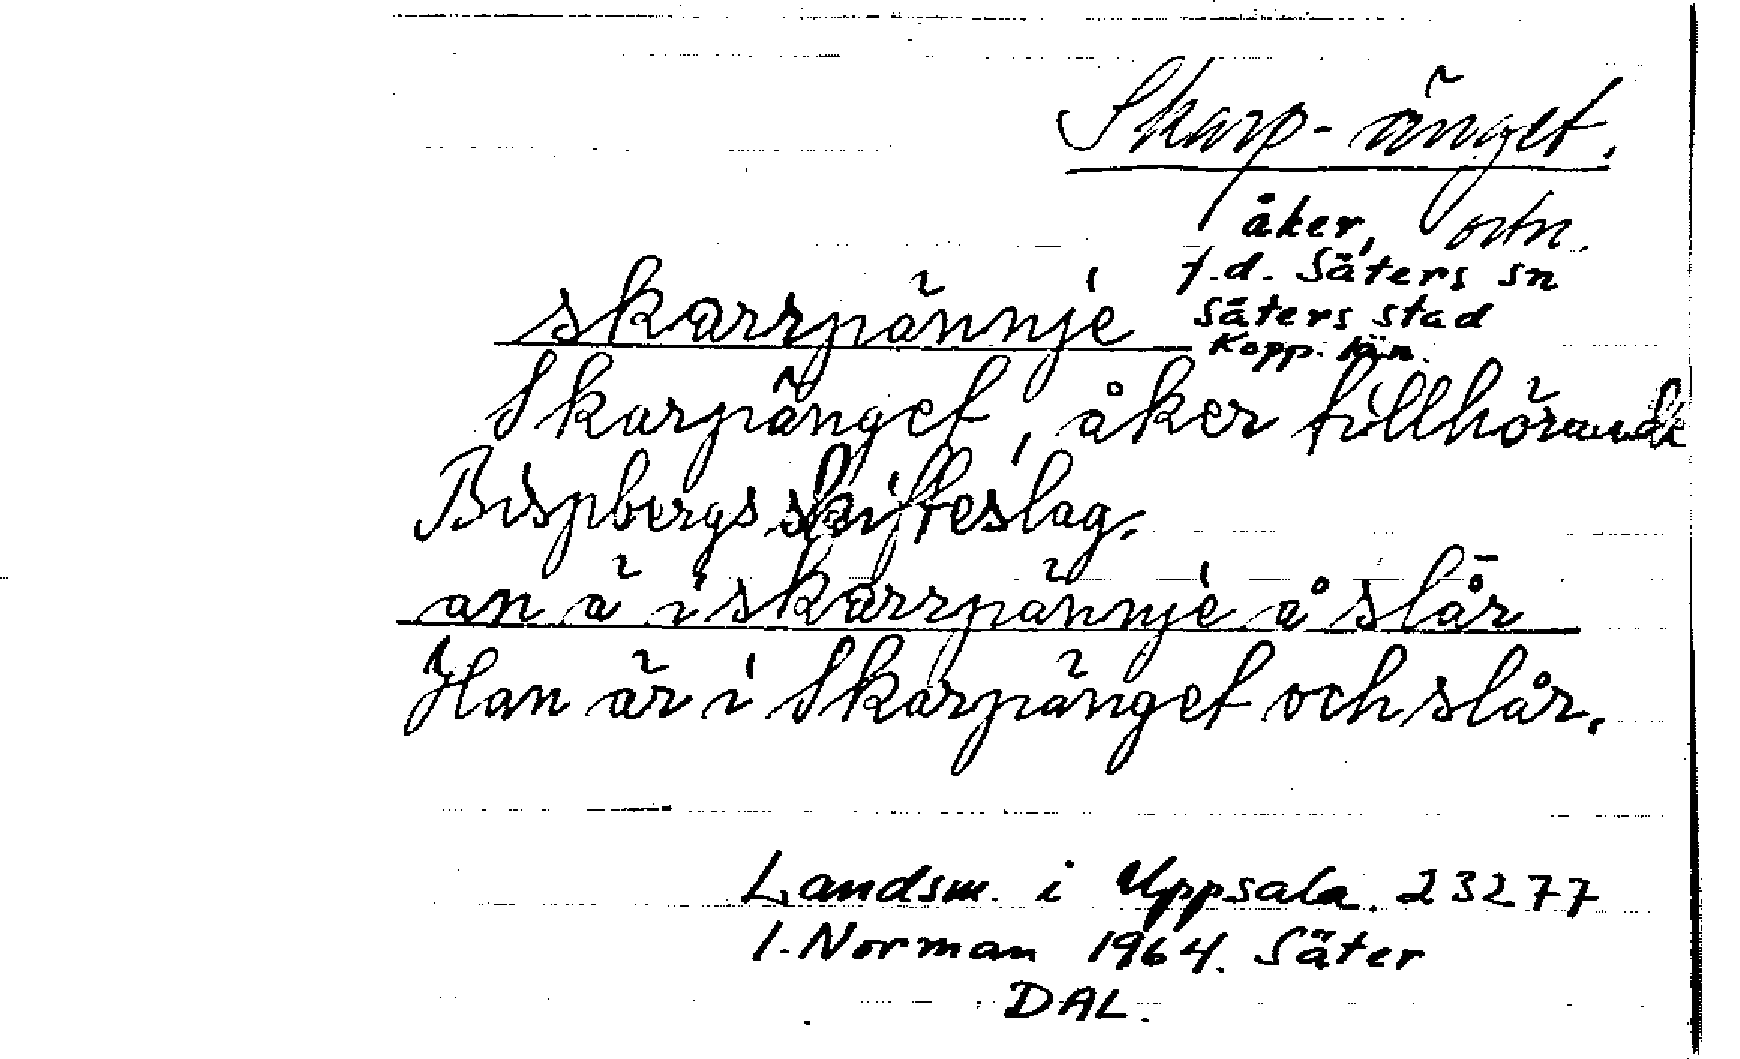 Skarp-änget.
åker, ortn.
f.d. Säters sn
skarrpännje
Säters stad
Kopp. län.
Skarpänget, åker tillhörande
Bispbergs skifteslag.
an ä i skarrpännje å slår
Han är i Skarpänget och slår.
Landsm. i Uppsala. 23277
I. Norman 1964. Säter
DAL.